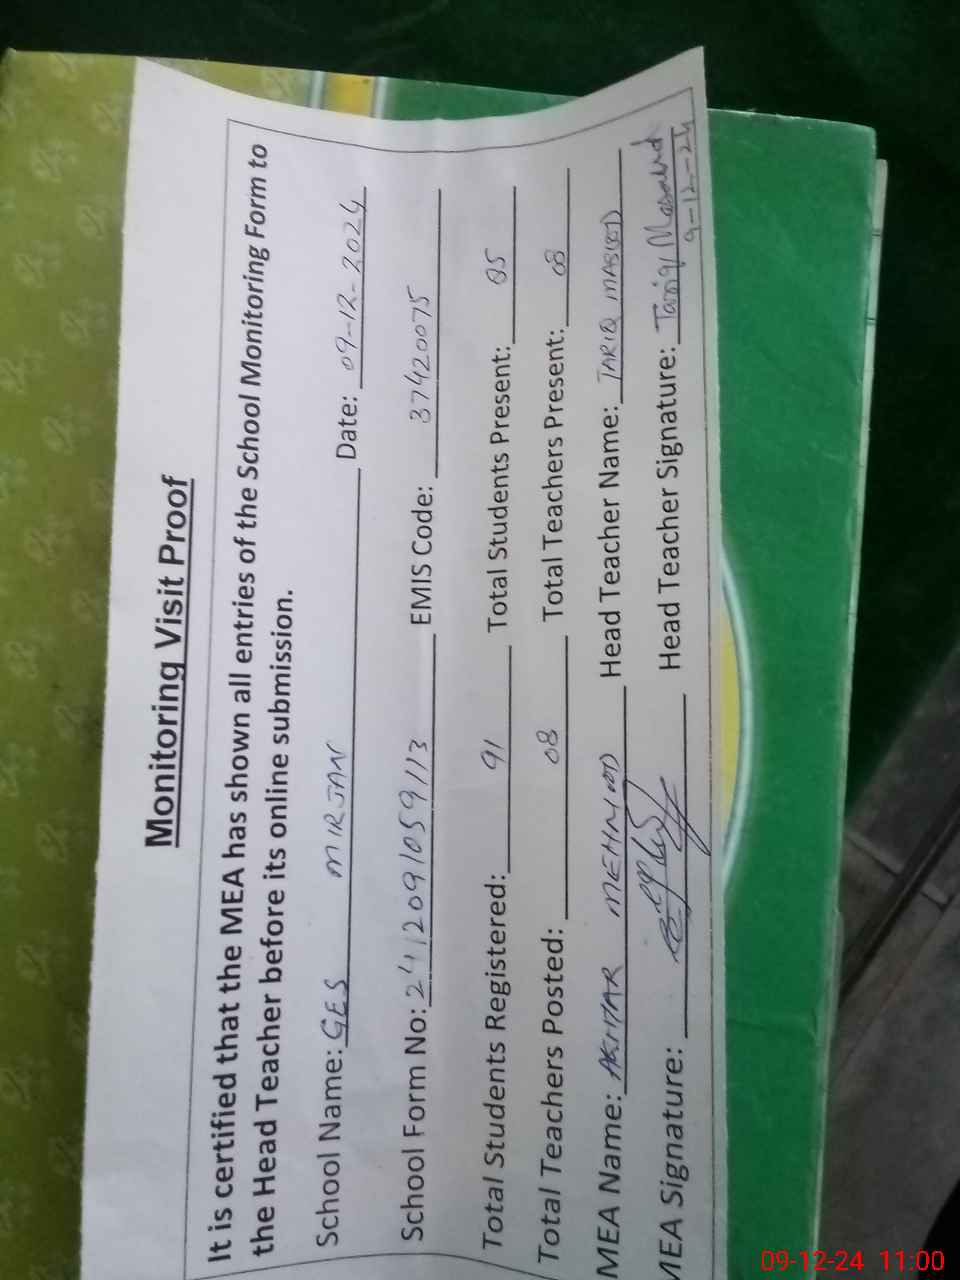 Monitoring Visit Proof
It is certified that the MEA has shown all entries of the School Monitoring Form to
the Head Teacher before its online submission.
School Name: GES MIRJAN Date: 09-12-2024
School Form No: 2411209105 9113 EMIS Code: 37420075
Total Students Registered: 91 Total Students Present: 85
Total Teachers Posted: 08 Total Teachers Present: 08
MEA Name: AKHTAR MEHMOOD Head Teacher Name: TARIQ MASOOD
MEA Signature: Head Teacher Signature: Tariq Masood
9-12-24
09-12-24 11:00